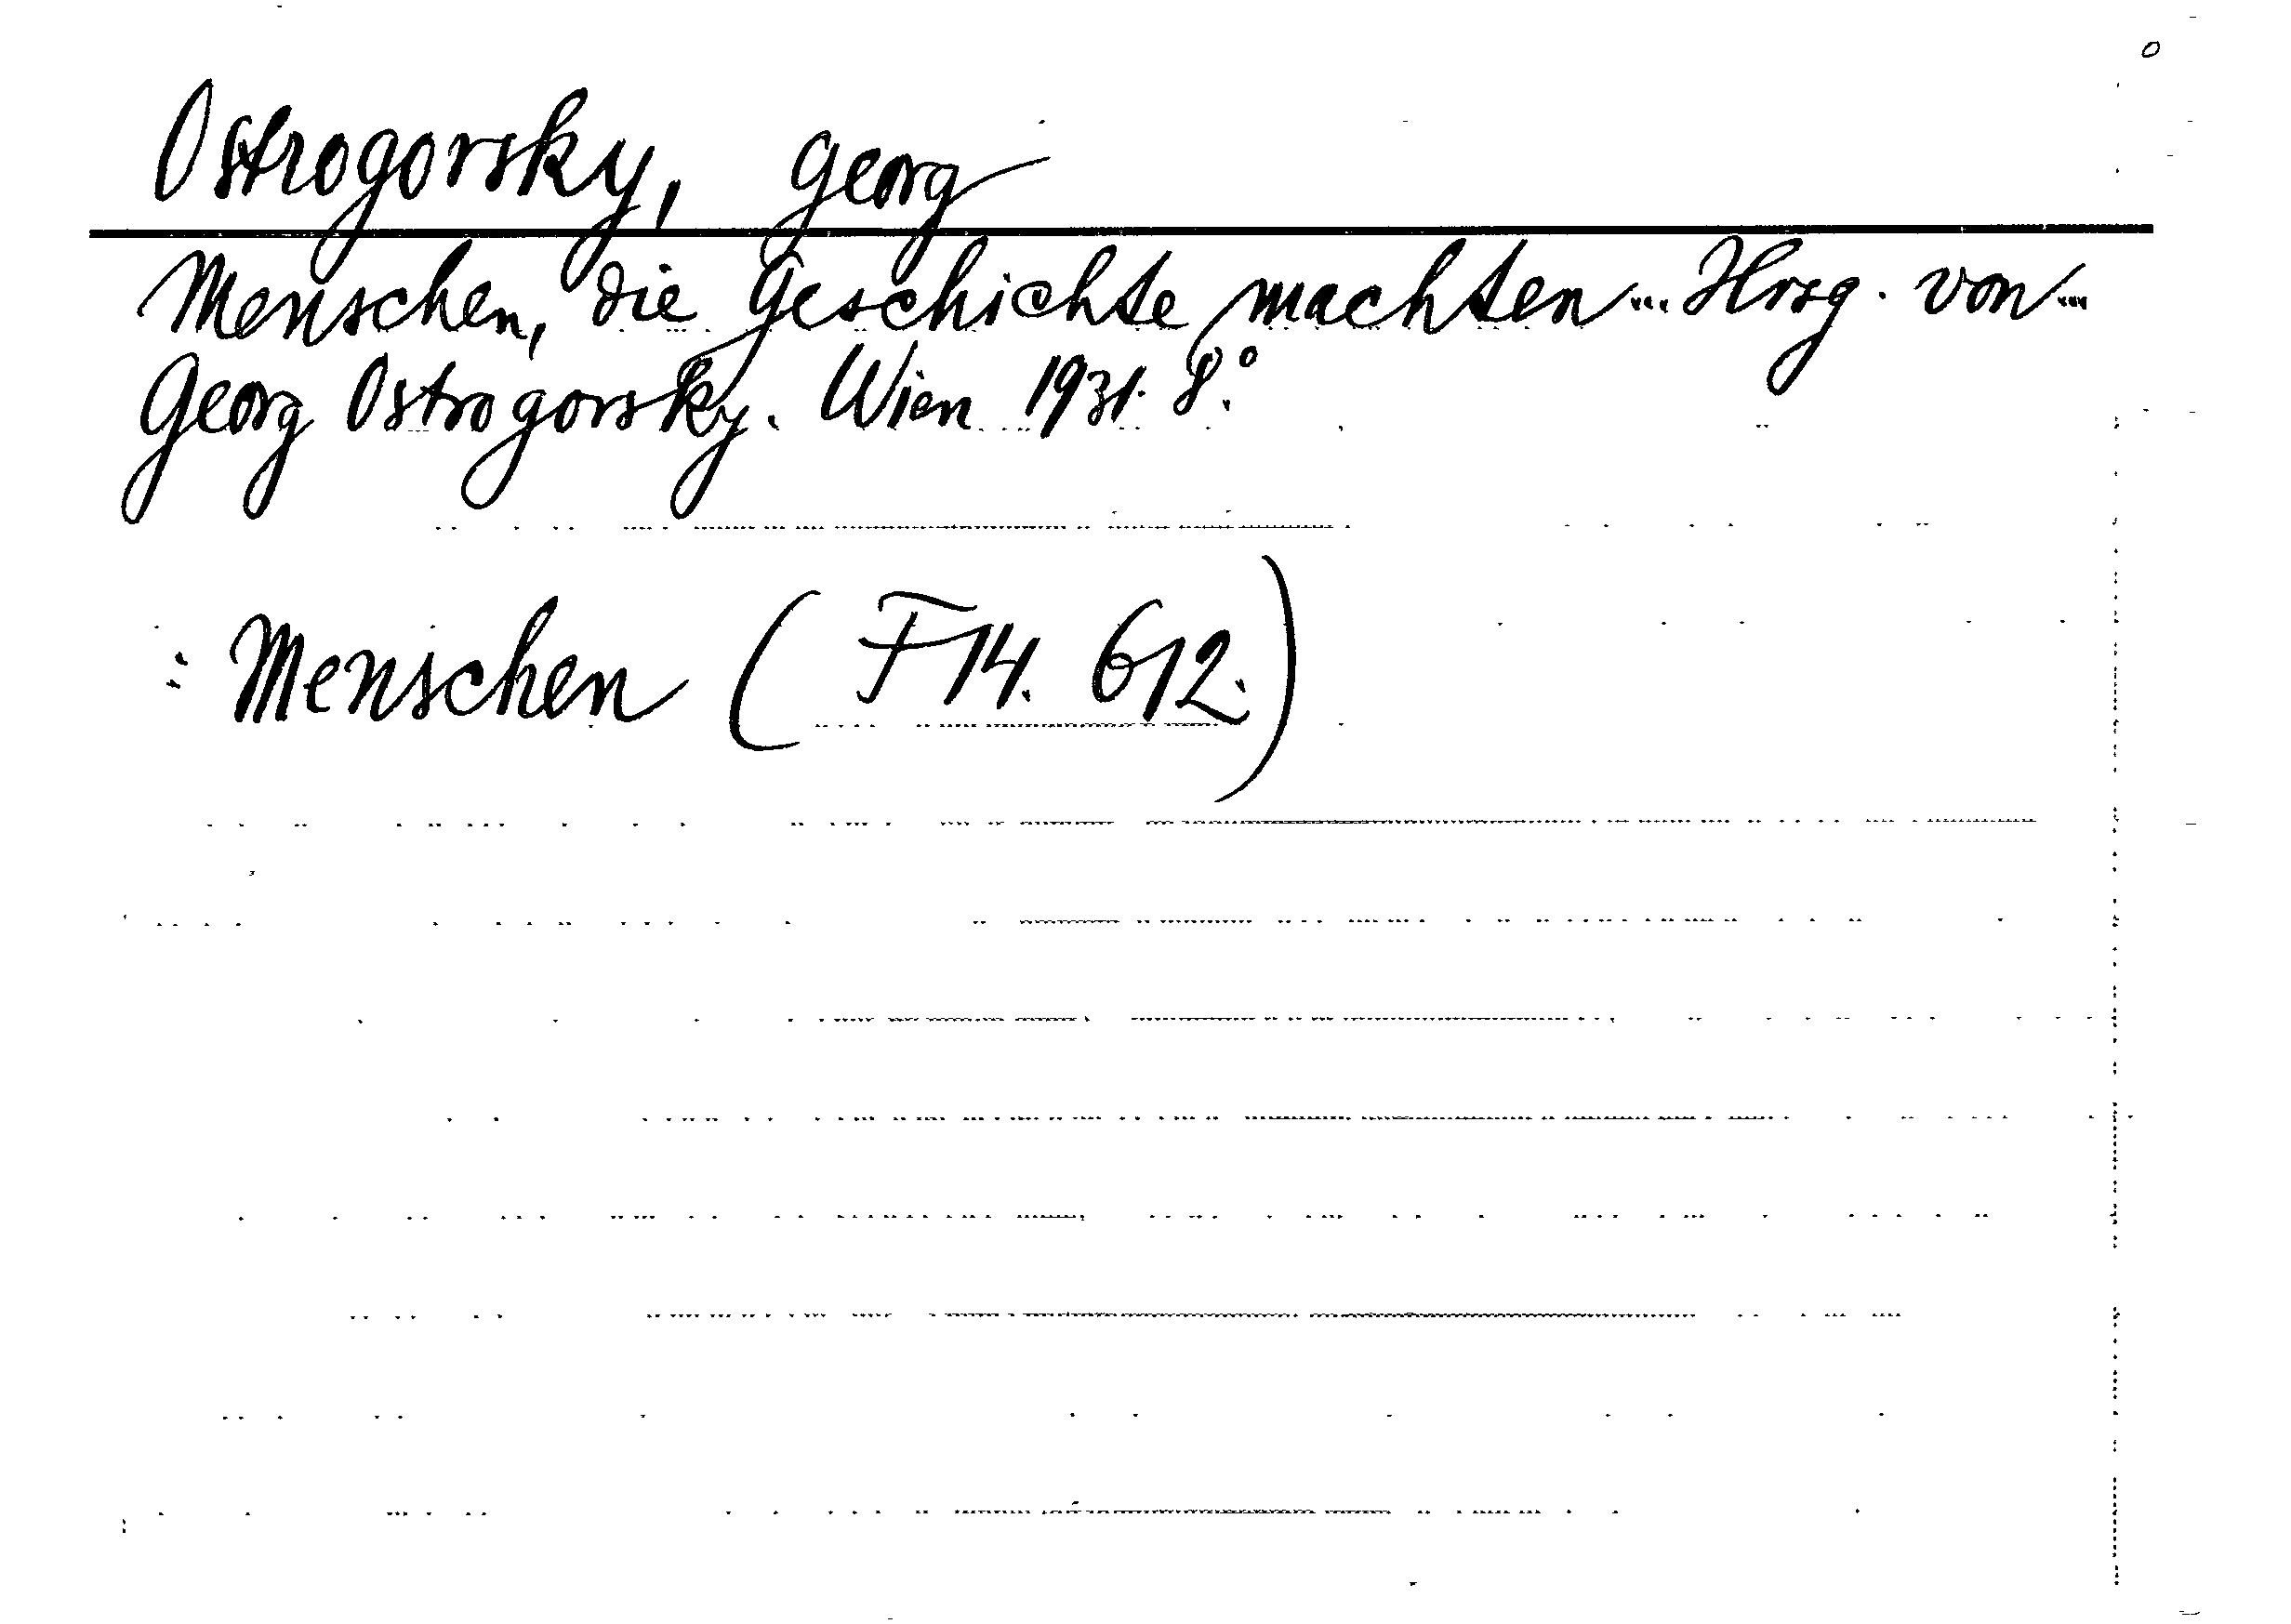 Ostrogorsky, Georg
Menschen, die Geschichte machten... Hrsg. von...
Georg Ostrogorsky. Wien 1931. 8.°
: Menschen ( F 14. 612. )